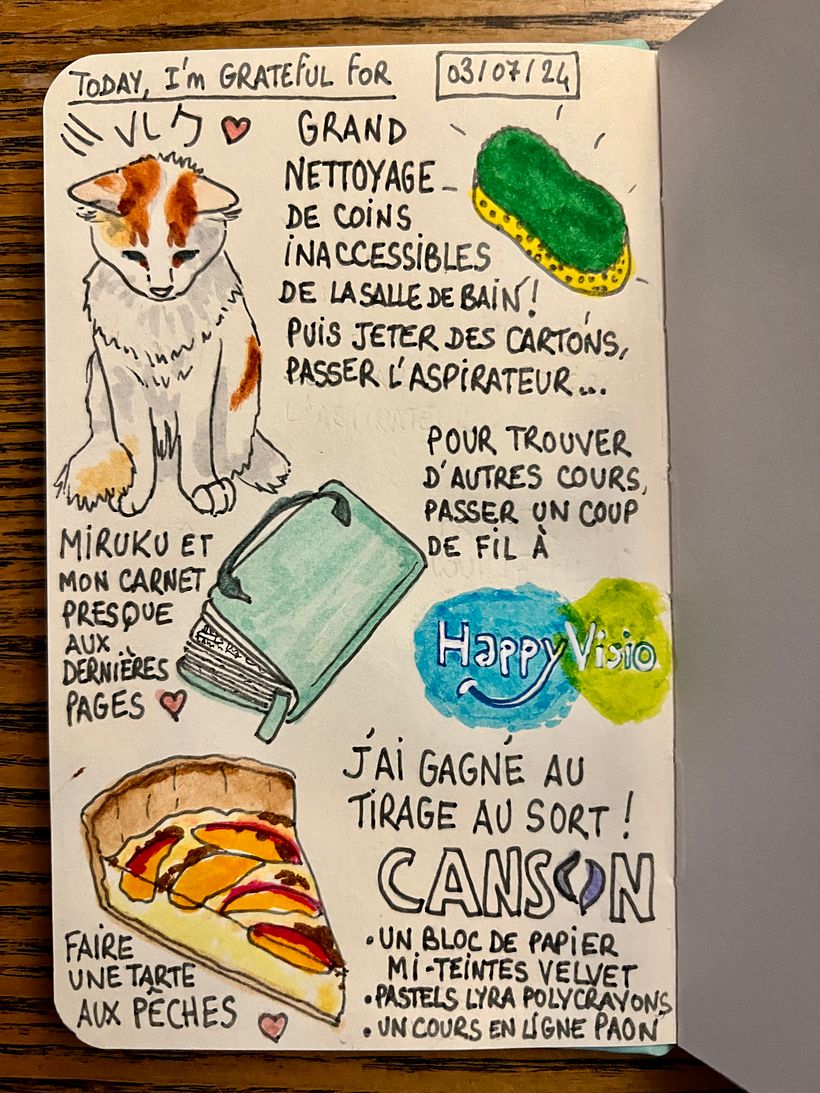 TODAY, I'm GRATEFUL FOR
03/07/24
ミルク
GRAND
NETTOYAGE
DE COINS
INACCESSIBLES
DE LA SALLE DE BAIN !
PUIS JETER DES CARTONS,
PASSER L'ASPIRATEUR...
POUR TROUVER
D'AUTRES COURS,
PASSER UN COUP
DE FIL À
HappyVisio
MIRUKU ET
MON CARNET
PRESQUE
AUX
DERNIÈRES
PAGES
J'AI GAGNÉ AU
TIRAGE AU SORT !
CANSON
• UN BLOC DE PAPIER
MI-TEINTES VELVET
• PASTELS LYRA POLYCRAYONS
• UN COURS EN LIGNE PAON
FAIRE
UNE TARTE
AUX PÊCHES